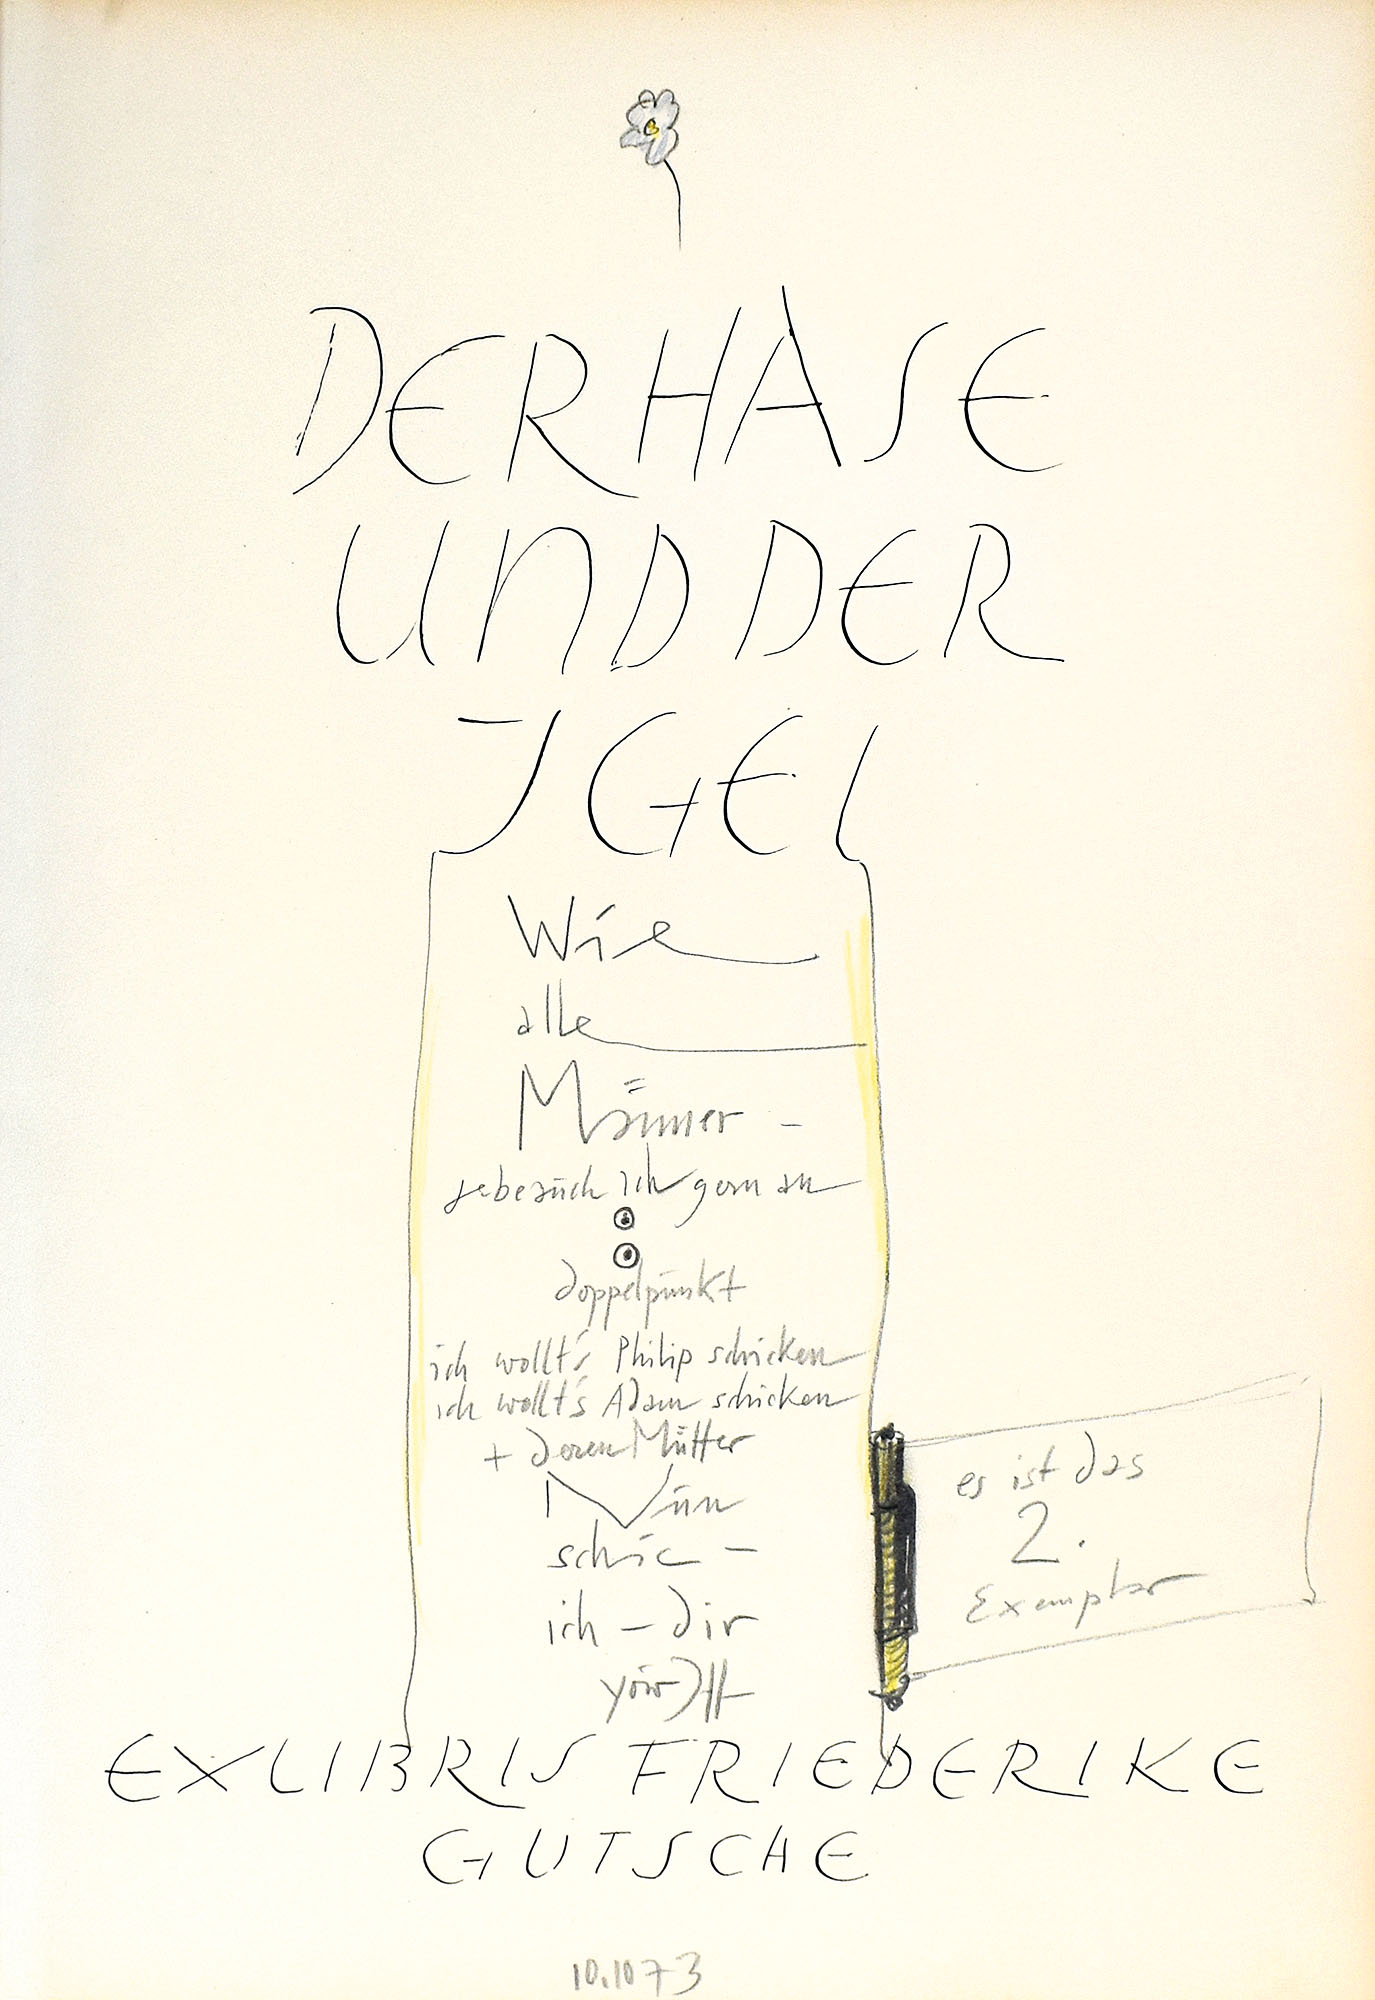 DER HASE
UND DER
IGEL
Wie
alle
Männer –
gebrauch ich gern an
doppelpunkt
ich wollt's Philip schicken
ich wollt's Adam schicken
+ deren Mütter
Nun
schic –
ich – dir
es ist das
2.
Exemplar
EXLIBRIS FRIEDERIKE
GUTSCHE
10.10 73